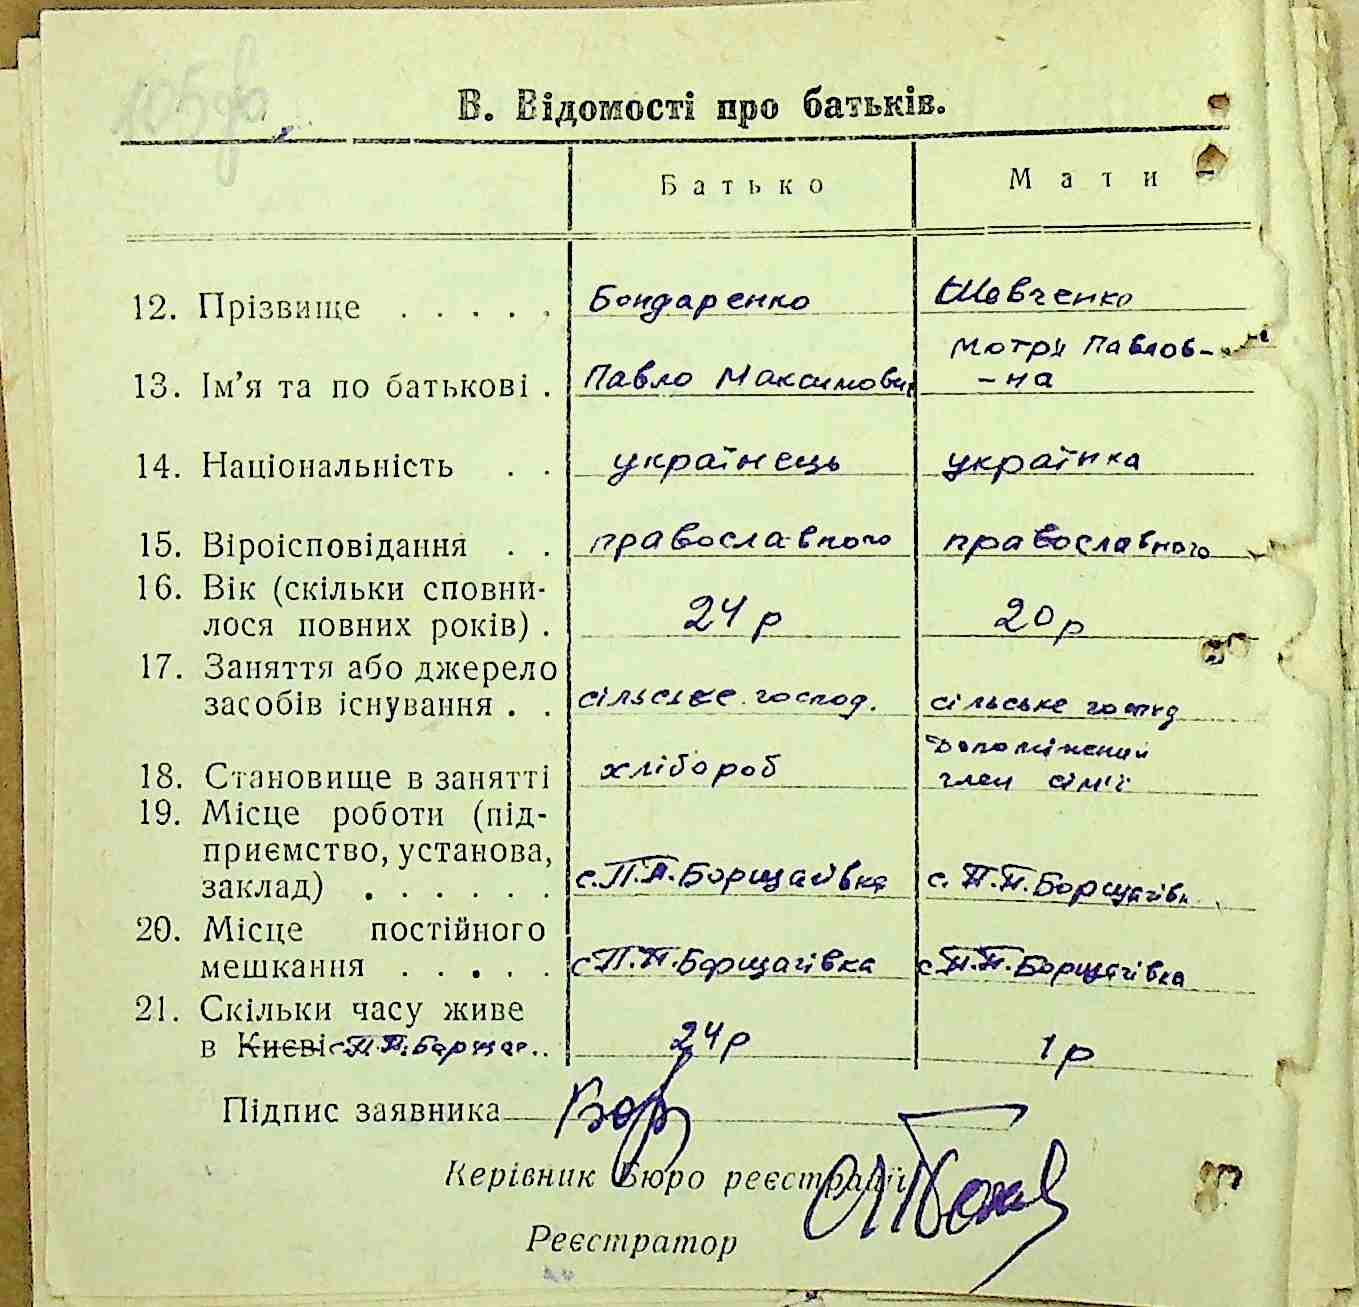 105 зв
В. Відомості про батьків.
Батько Мати
12. Прізвище . . . . . Бондаренко Шевченко
13. Ім’я та по батькові . Павло Максимович Мотря Павлов-
-на
14. Національність . . українець українка
15. Віроісповідання . . православного православного
16. Вік (скільки сповни-
лося повних років) . 24 р 20 р
17. Заняття або джерело
засобів існування . . сільське господ. сільське господ
18. Становище в занятті хлібороб допоміжний
член сімії
19. Місце роботи (під-
приємство, установа,
заклад) . . . . . . с. П.П. Борщагівка с. П.П. Борщагівк
20. Місце постійного
мешкання . . . . . с П.П. Борщагівка с П.П. Борщагівка
21. Скільки часу живе
в Києві с П.П. Борщаг.. 24 р 1 р
Підпис заявника
Керівник Бюро реєстрації
Реєстратор